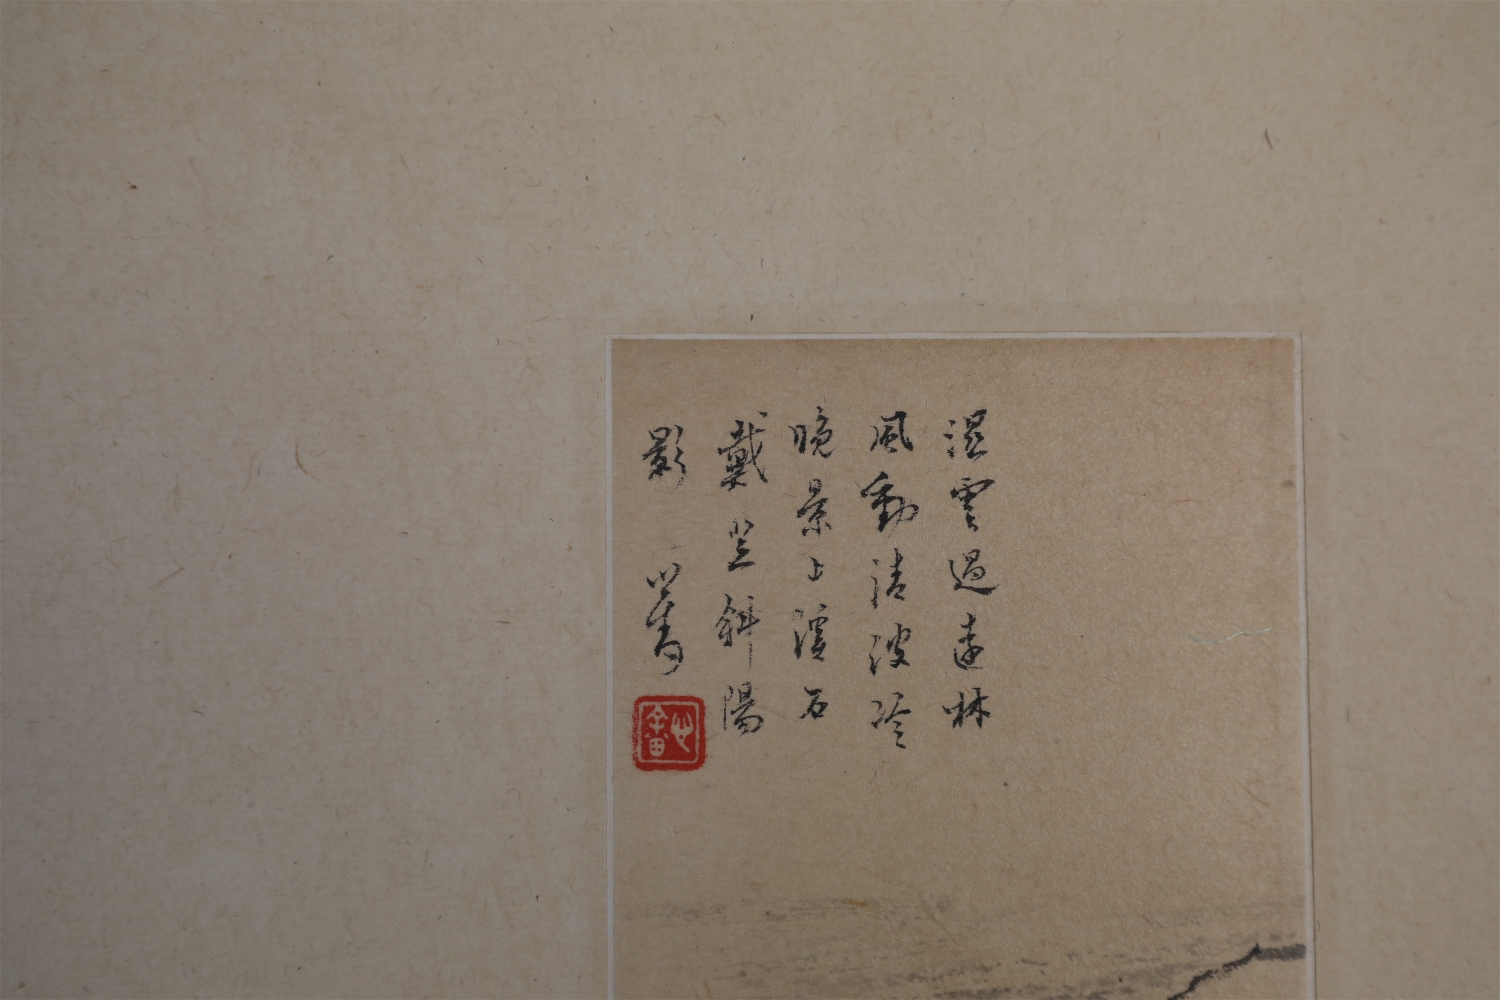 湿雲過遠林
風動清波冷
晚景上溪石
戴笠斜陽
影 心畬